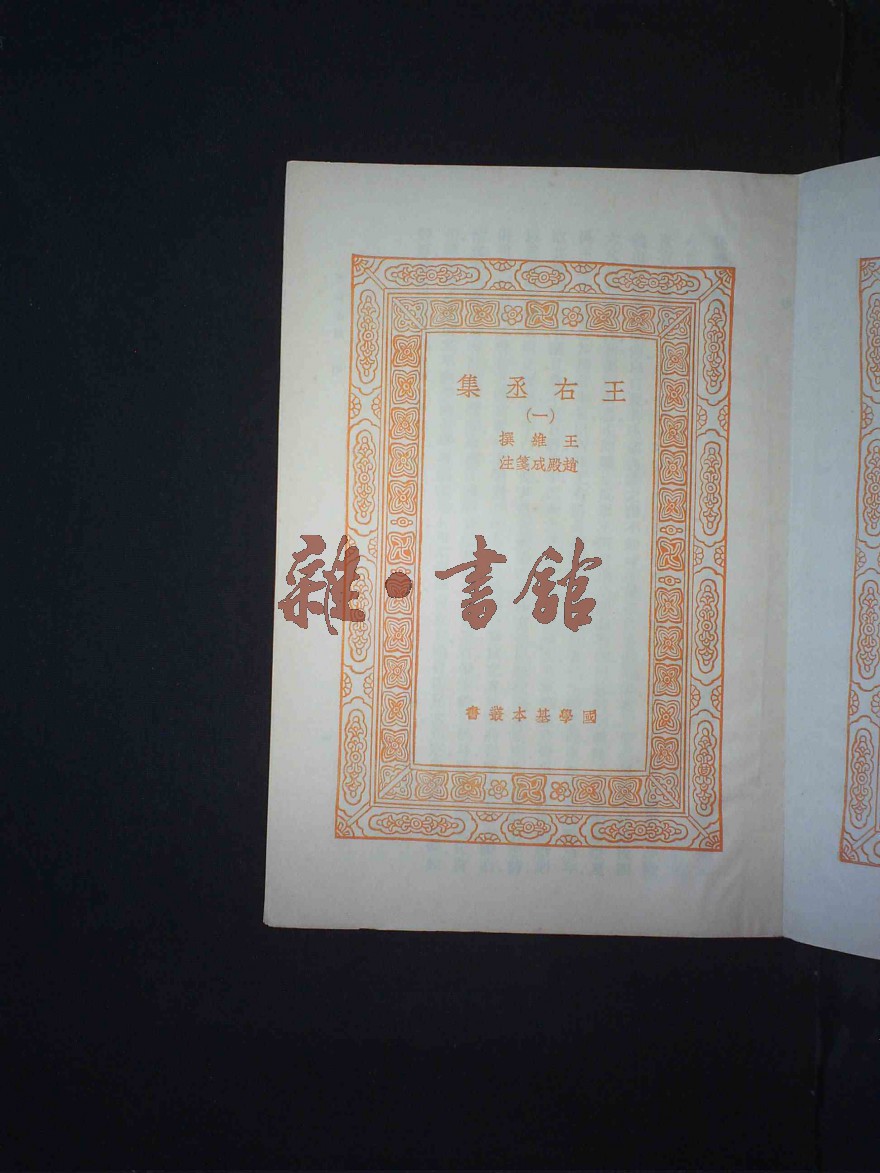 王右丞集
(一)
王維撰
趙殿成箋注
雜·書館
國學基本叢書